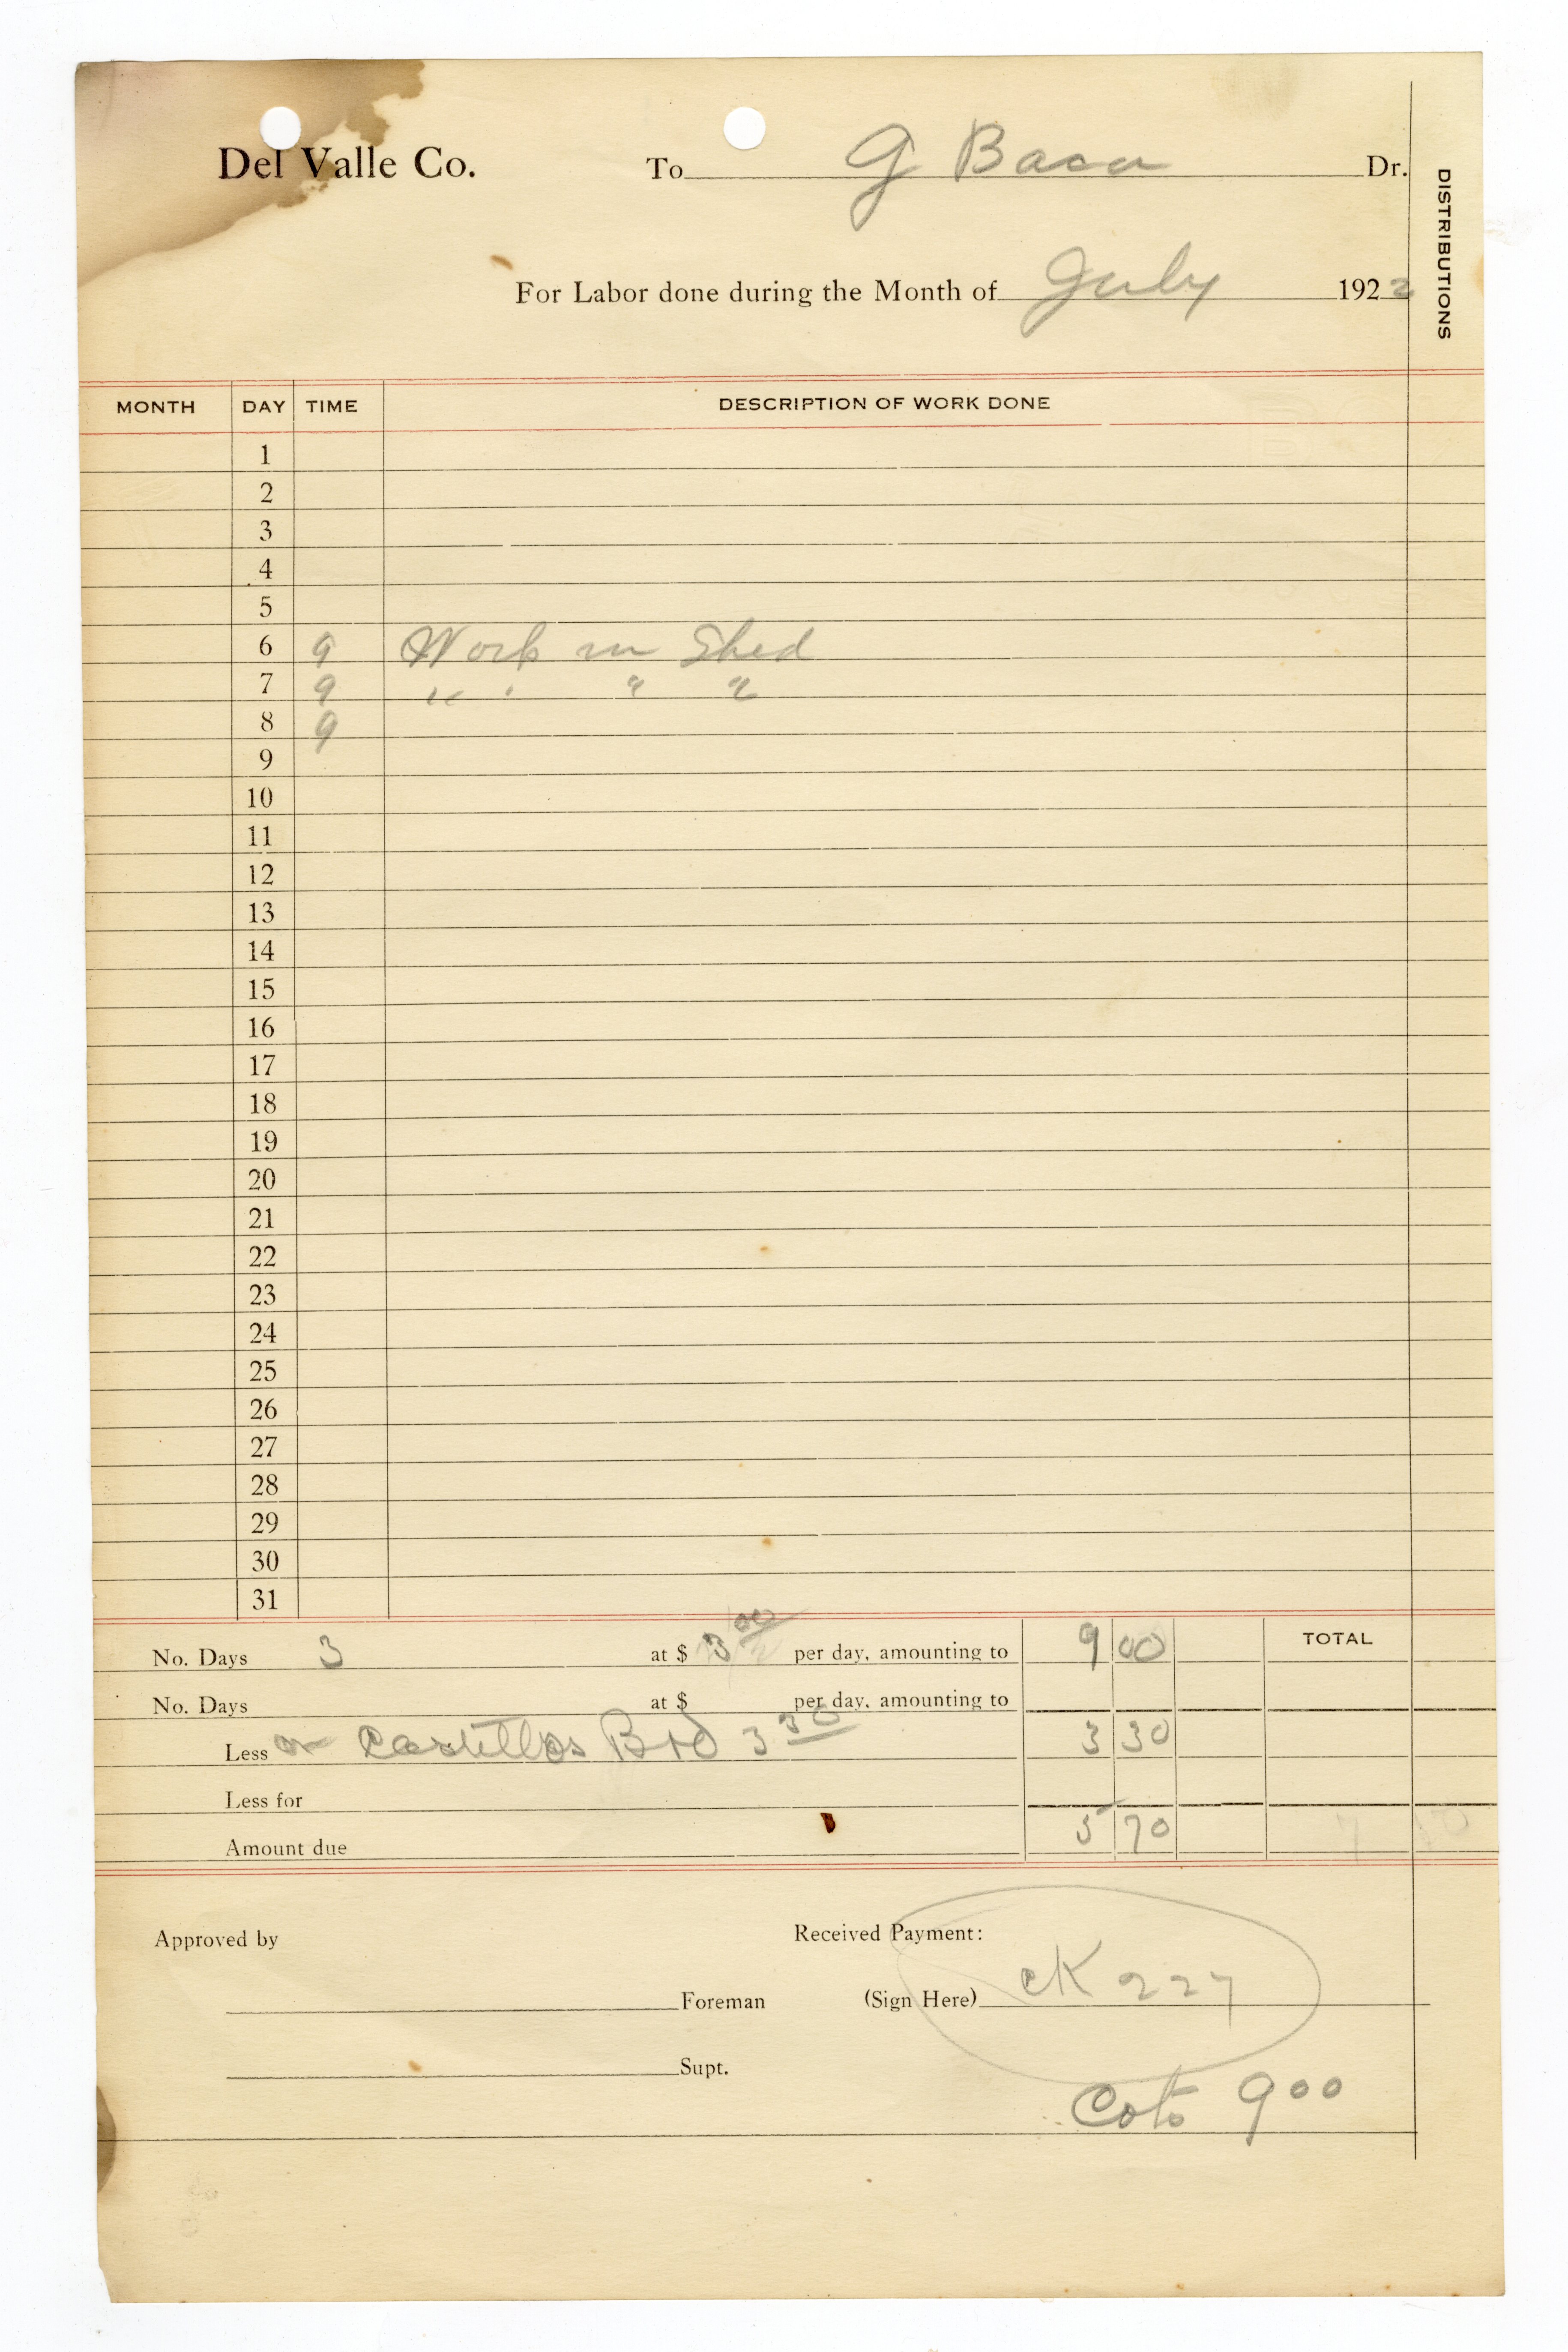 Del Valle Co. To G Baca Dr.
DISTRIBUTIONS
For Labor done during the Month of July 1922
MONTH DAY TIME DESCRIPTION OF WORK DONE
1
2
3
4
5
6 9 Work in Shed
7 9 " " " "
8 9
9
10
11
12
13
14
15
16
17
18
19
20
21
22
23
24
25
26
27
28
29
30
31
No. Days 3 at $ 3 00 per day, amounting to 9 00 TOTAL
No. Days at $ per day, amounting to
Less Castillos Brd 3 30 3 30
Less for
Amount due 5 70
Approved by Received Payment:
Foreman (Sign Here) CK 227
Supt.
9 00